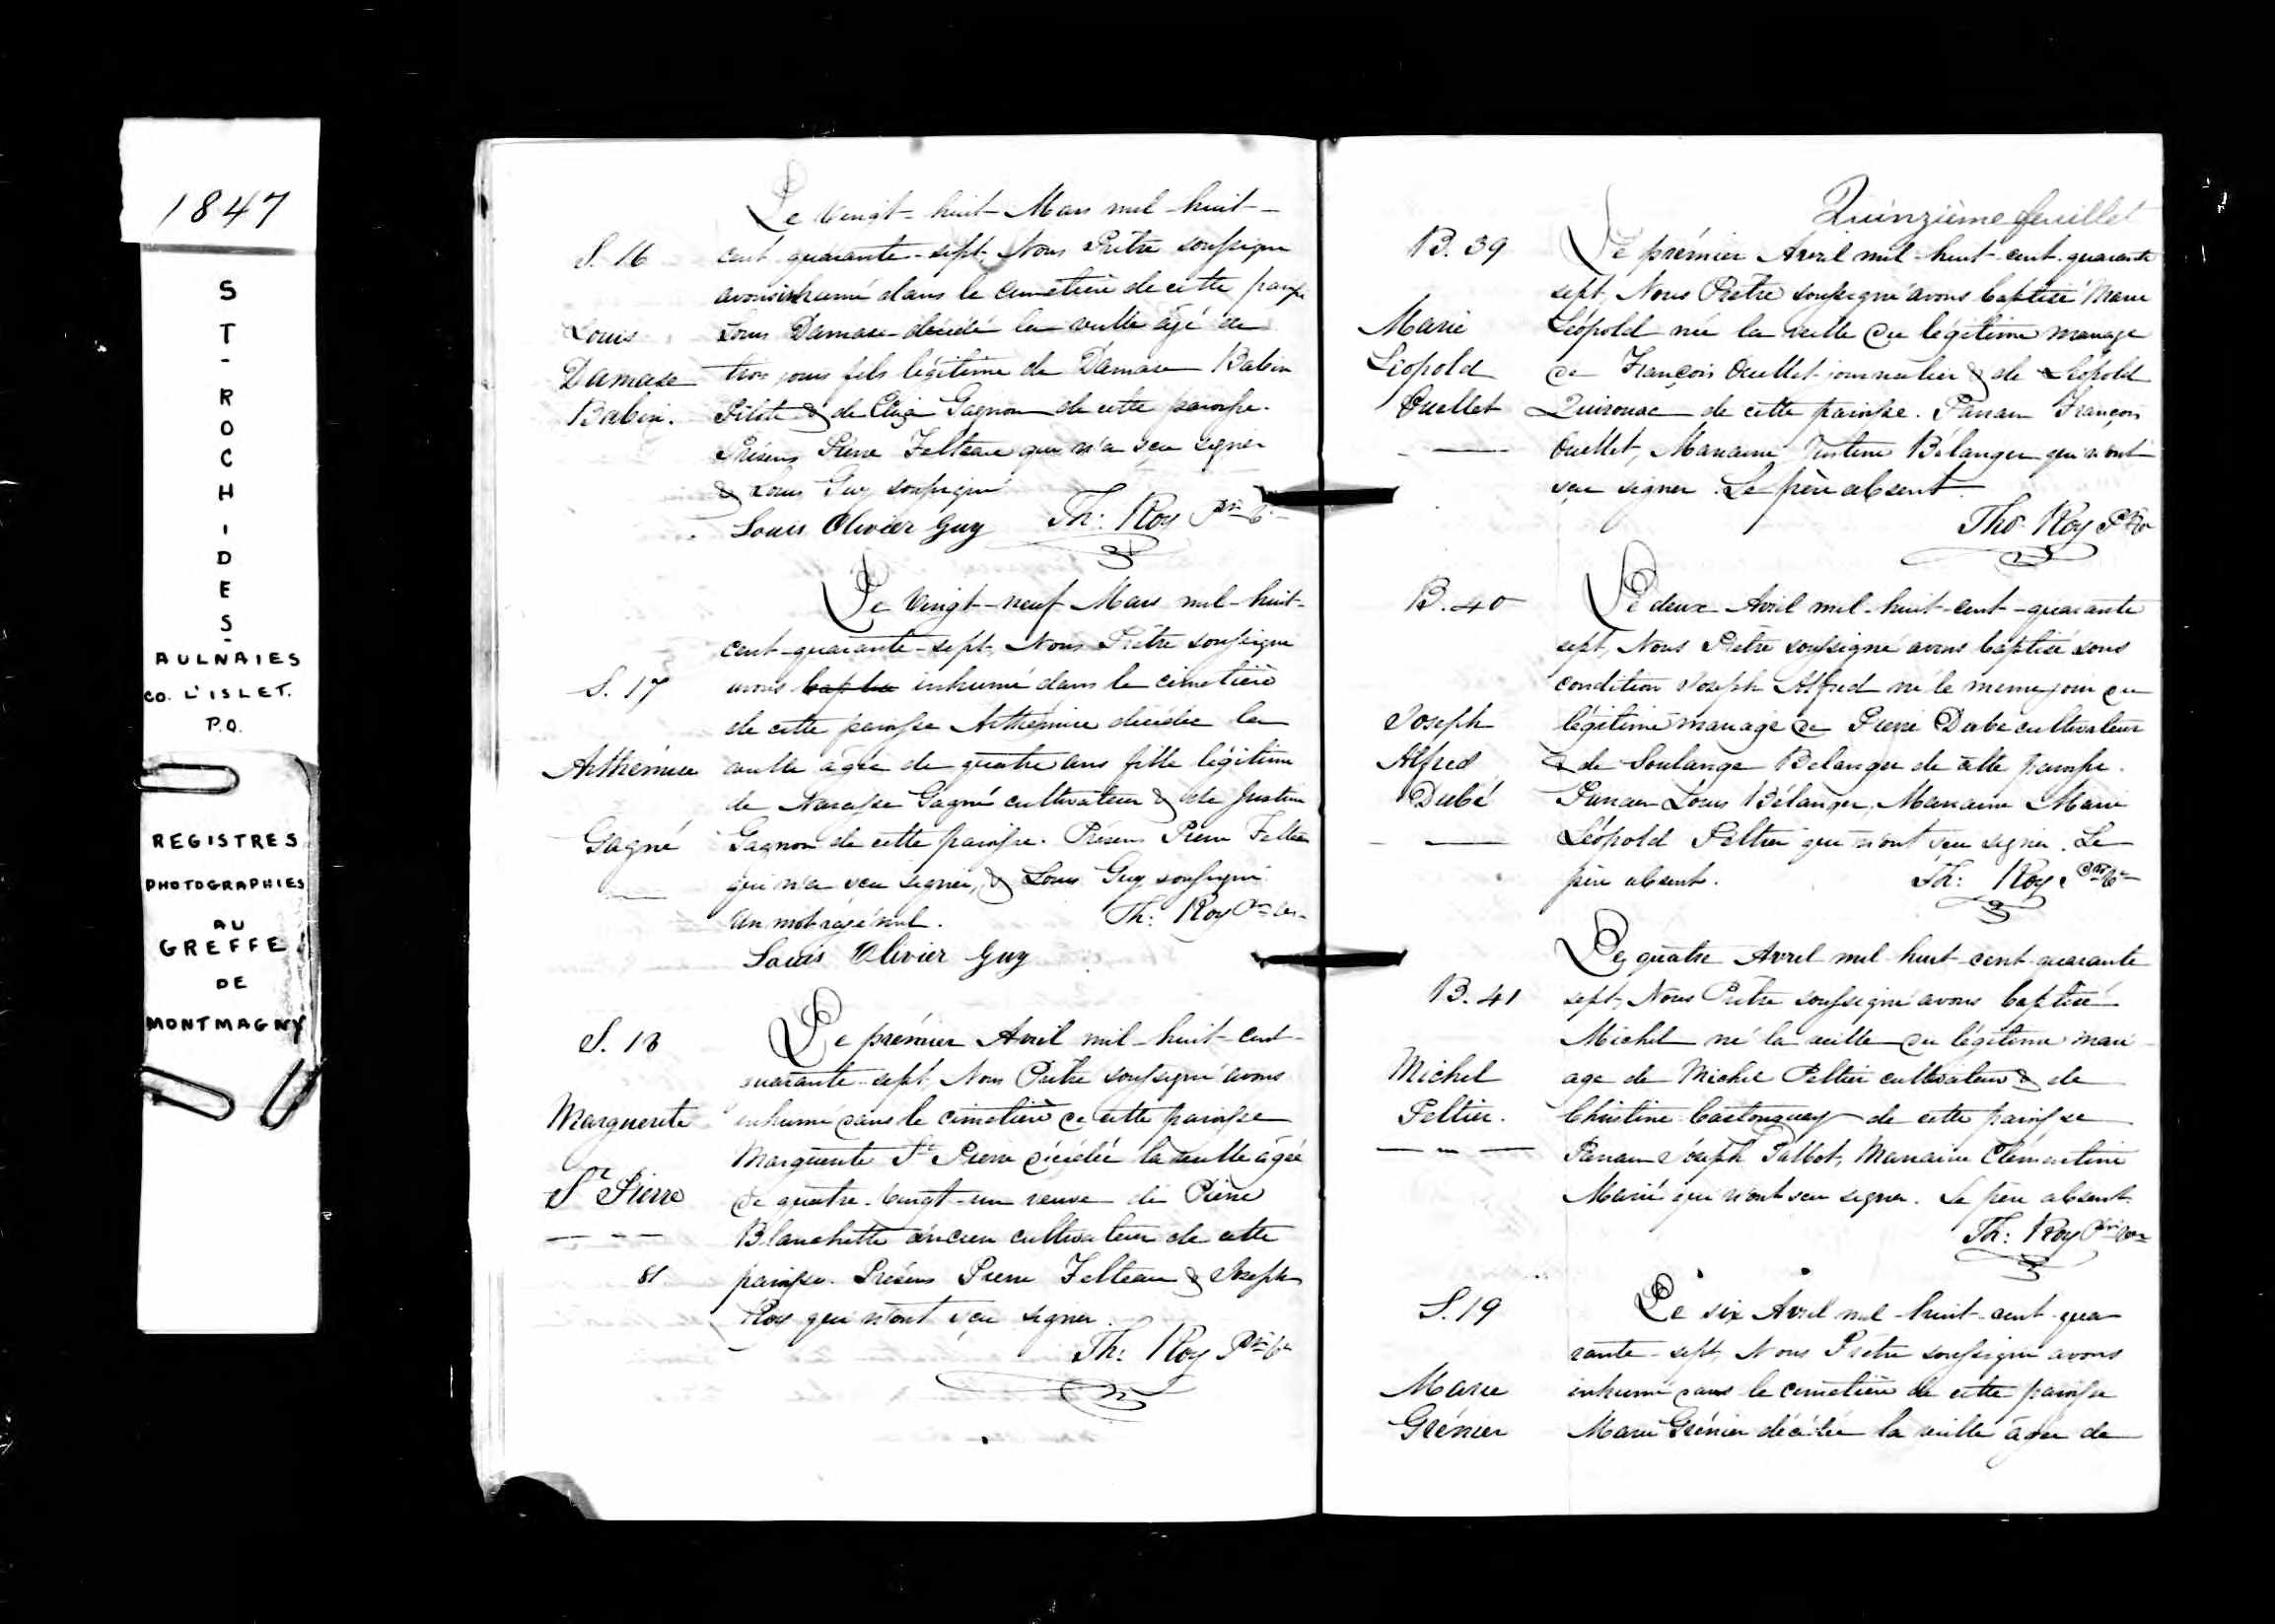 1847
ST-ROCH-DES-
AULNAIES
CO. L'ISLET.
P.Q.
REGISTRES
PHOTOGRAPHIES
AU
GREFFE
DE
MONTMAGNY
Le vingt-huit Mars mil-huit-
S. 16
cent quarante-sept, Nous Prêtre soussigné
avons inhumé dans le cimetière de cette paroisse
Louis
Damase
Babin.
Louis Damase décédé la veille âgé de
trois jours fils légitime de Damase Babin
Pilote & de Eliza Gagnon de cette paroisse.
Présens Pierre Felteau qui n'a sçu signer
& Louis Guy soussigné
Louis Olivier Guy Th: Roy Ptre
Le vingt-neuf Mars mil-huit-
cent-quarante-sept, Nous Prêtre soussigné
S. 17
avons inhumé dans le cimetière
de cette paroisse Arthémise décédée la
Arthémise
Gagné
veille âgée de quatre ans fille légitime
de Narcisse Gagné cultivateur & de Justine
Gagnon de cette paroisse. Présens Pierre Felteau
qui n'a sçu signer, & Louis Guy soussigné
un mot rayé nul. Th: Roy Ptre
Louis Olivier Guy
S. 18
Le prémier Avril mil-huit-cent-
quarante-sept, Nous Prêtre soussigné avons
Marguerite
St Pierre
81
inhumé dans le cimetière de cette paroisse
Marguerite St Pierre décédée la veille âgée
de quatre-vingt-un veuve de Pierre
Blanchette ancien cultivateur de cette
paroisse. Présens Pierre Felteau & Joseph
Roy qui n'ont sçu signer.
Th: Roy Ptre
Quinzième feuillet
B. 39
Le prémier Avril mil-huit-cent-quarante
sept, Nous Prêtre soussigné avons baptisé Marie
Marie
Léopold
Ouellet
Léopold née la veille du légitime mariage
de François Ouellet journalier & de Léopold
Quirouac de cette paroisse. Parrain François
Ouellet, Marraine Justine Bélanger qui n'ont
sçu signer. Le père absent.
Tho. Roy Ptre
B. 40
Le deux Avril mil-huit-cent-quarante
sept, Nous Prêtre soussigné avons baptisé sous
condition Joseph Alfred né le même jour du
Joseph
Alfred
Dubé
légitime mariage de Pierre Dubé cultivateur
& de Soulange Bélanger de cette paroisse.
Parrain Louis Bélanger, Marraine Marie
Léopold Peltier qui n'ont sçu signer. Le
père absent. Th: Roy Ptre
Le quatre Avril mil-huit-cent-quarante
B. 41
sept, Nous Prêtre soussigné avons baptisé
Michel né la veille du légitime mari
Michel
Peltier.
age de Michel Peltier cultivateur & de
Christine Castonguay de cette paroisse
Parrain Joseph Talbot, Marraine Clémentine
Marié qui n'ont sçu signer. Le père absent.
Th: Roy Ptre
S. 19
Le six Avril mil-huit-cent-qua
rante-sept, Nous Prêtre soussigné avons
Marie
Grénier
inhumé dans le cimetière de cette paroisse
Marie Grénier décédée la veille âgée de